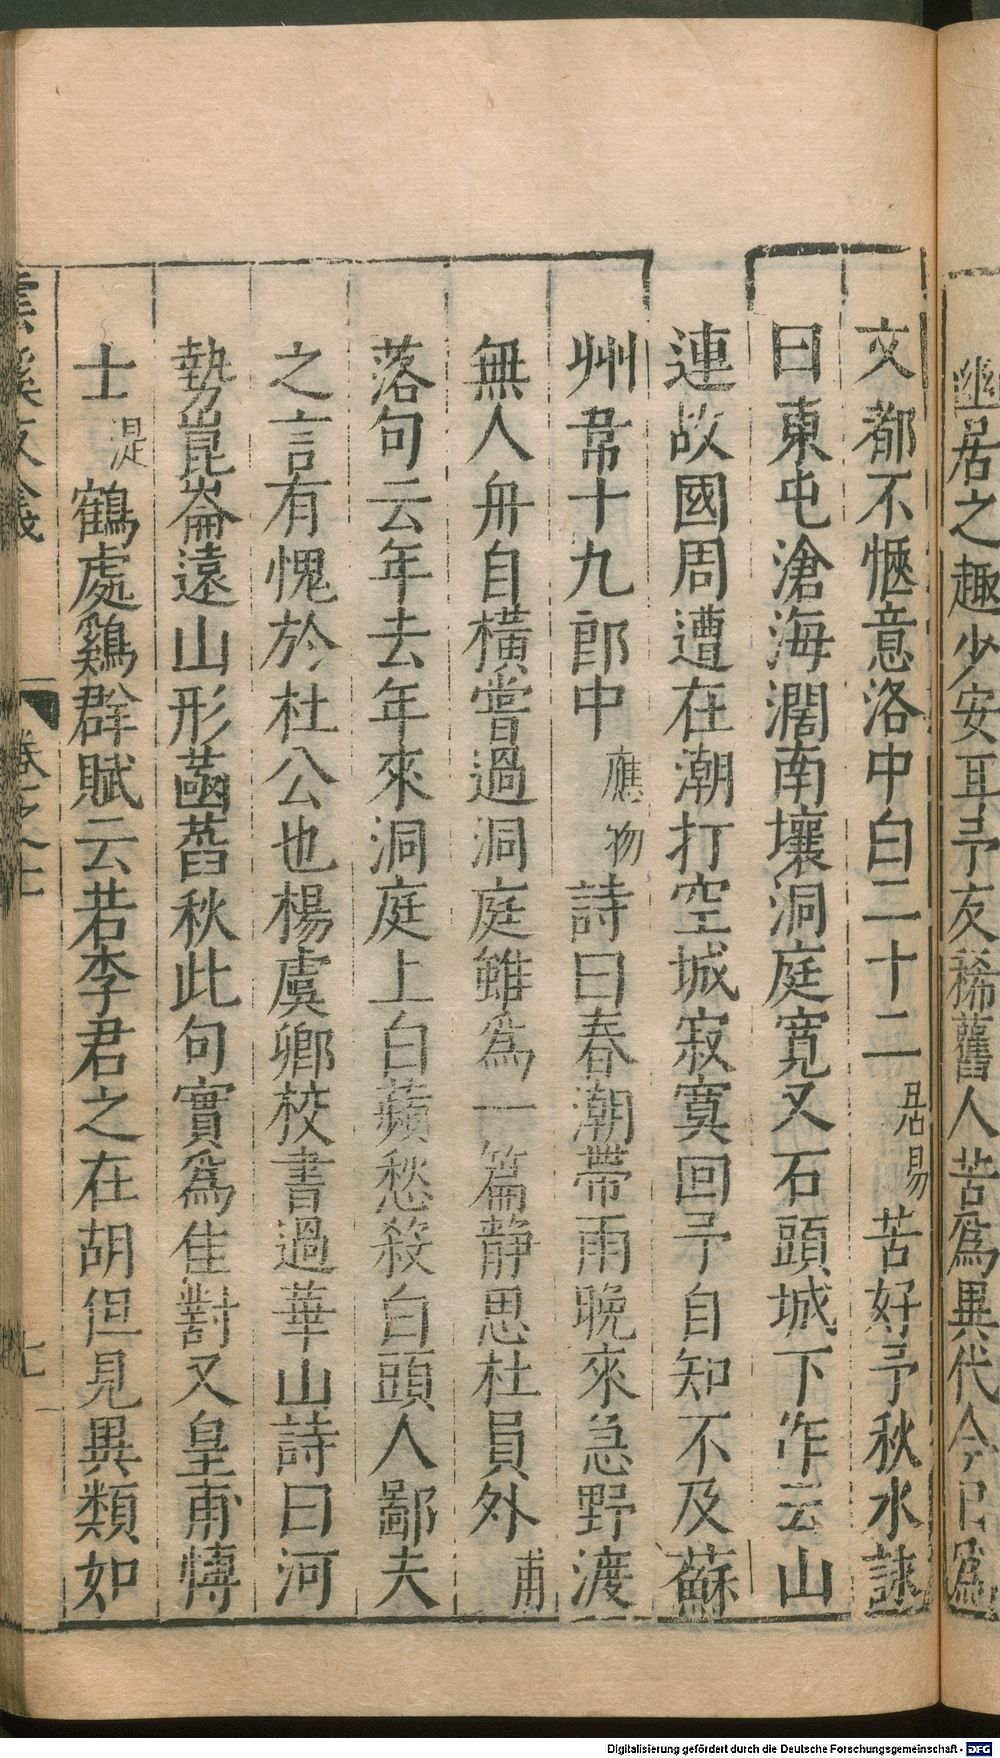 幽居之趣少安耳予友稀舊人苦爲異代今日爲
文都不愜意洛中白二十二居易苦好予秋水詠
曰東屯滄海濶南壤洞庭寬又石頭城下作云山
連故國周遭在潮打空城寂寞回予自知不及蘇
州韋十九郎中應物詩曰春潮帶雨晚來急野渡
無人舟自橫嘗過洞庭雖爲一篇静思杜員外甫
落句云年去年來洞庭上白蘋愁殺白頭人鄙夫
之言有愧於杜公也楊虞卿校書過華山詩曰河
勢崑崙遠山形菡萏秋此句實爲佳對又皇甫愽
士湜鶴處鷄群賦云若李君之在胡但見異類如
雲溪友議
卷之七
七
Digitalisierung gefördert durch die Deutsche Forschungsgemeinschaft - DFG